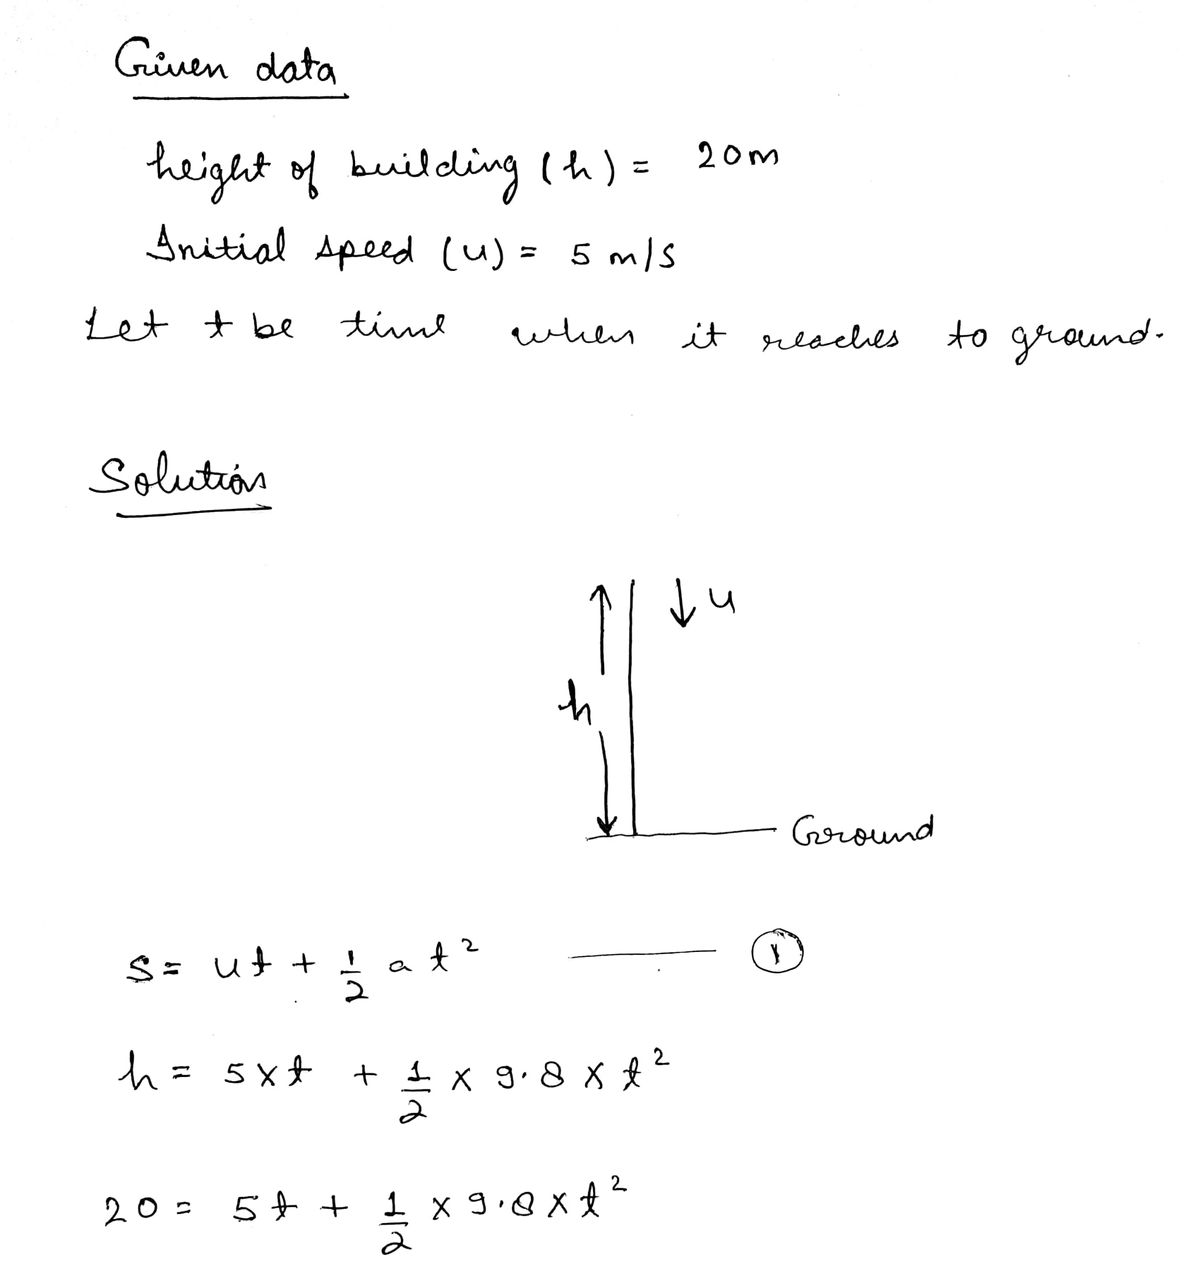 Given data
height of building (h) = 20m
Initial speed (u) = 5 m/s
Let t be time when it reaches to ground.
Solution
↓ u
h
Ground
s = ut + 1/2 a t² ——— ①
h = 5 × t + 1/2 × 9.8 × t²
20 = 5t + 1/2 × 9.8 × t²